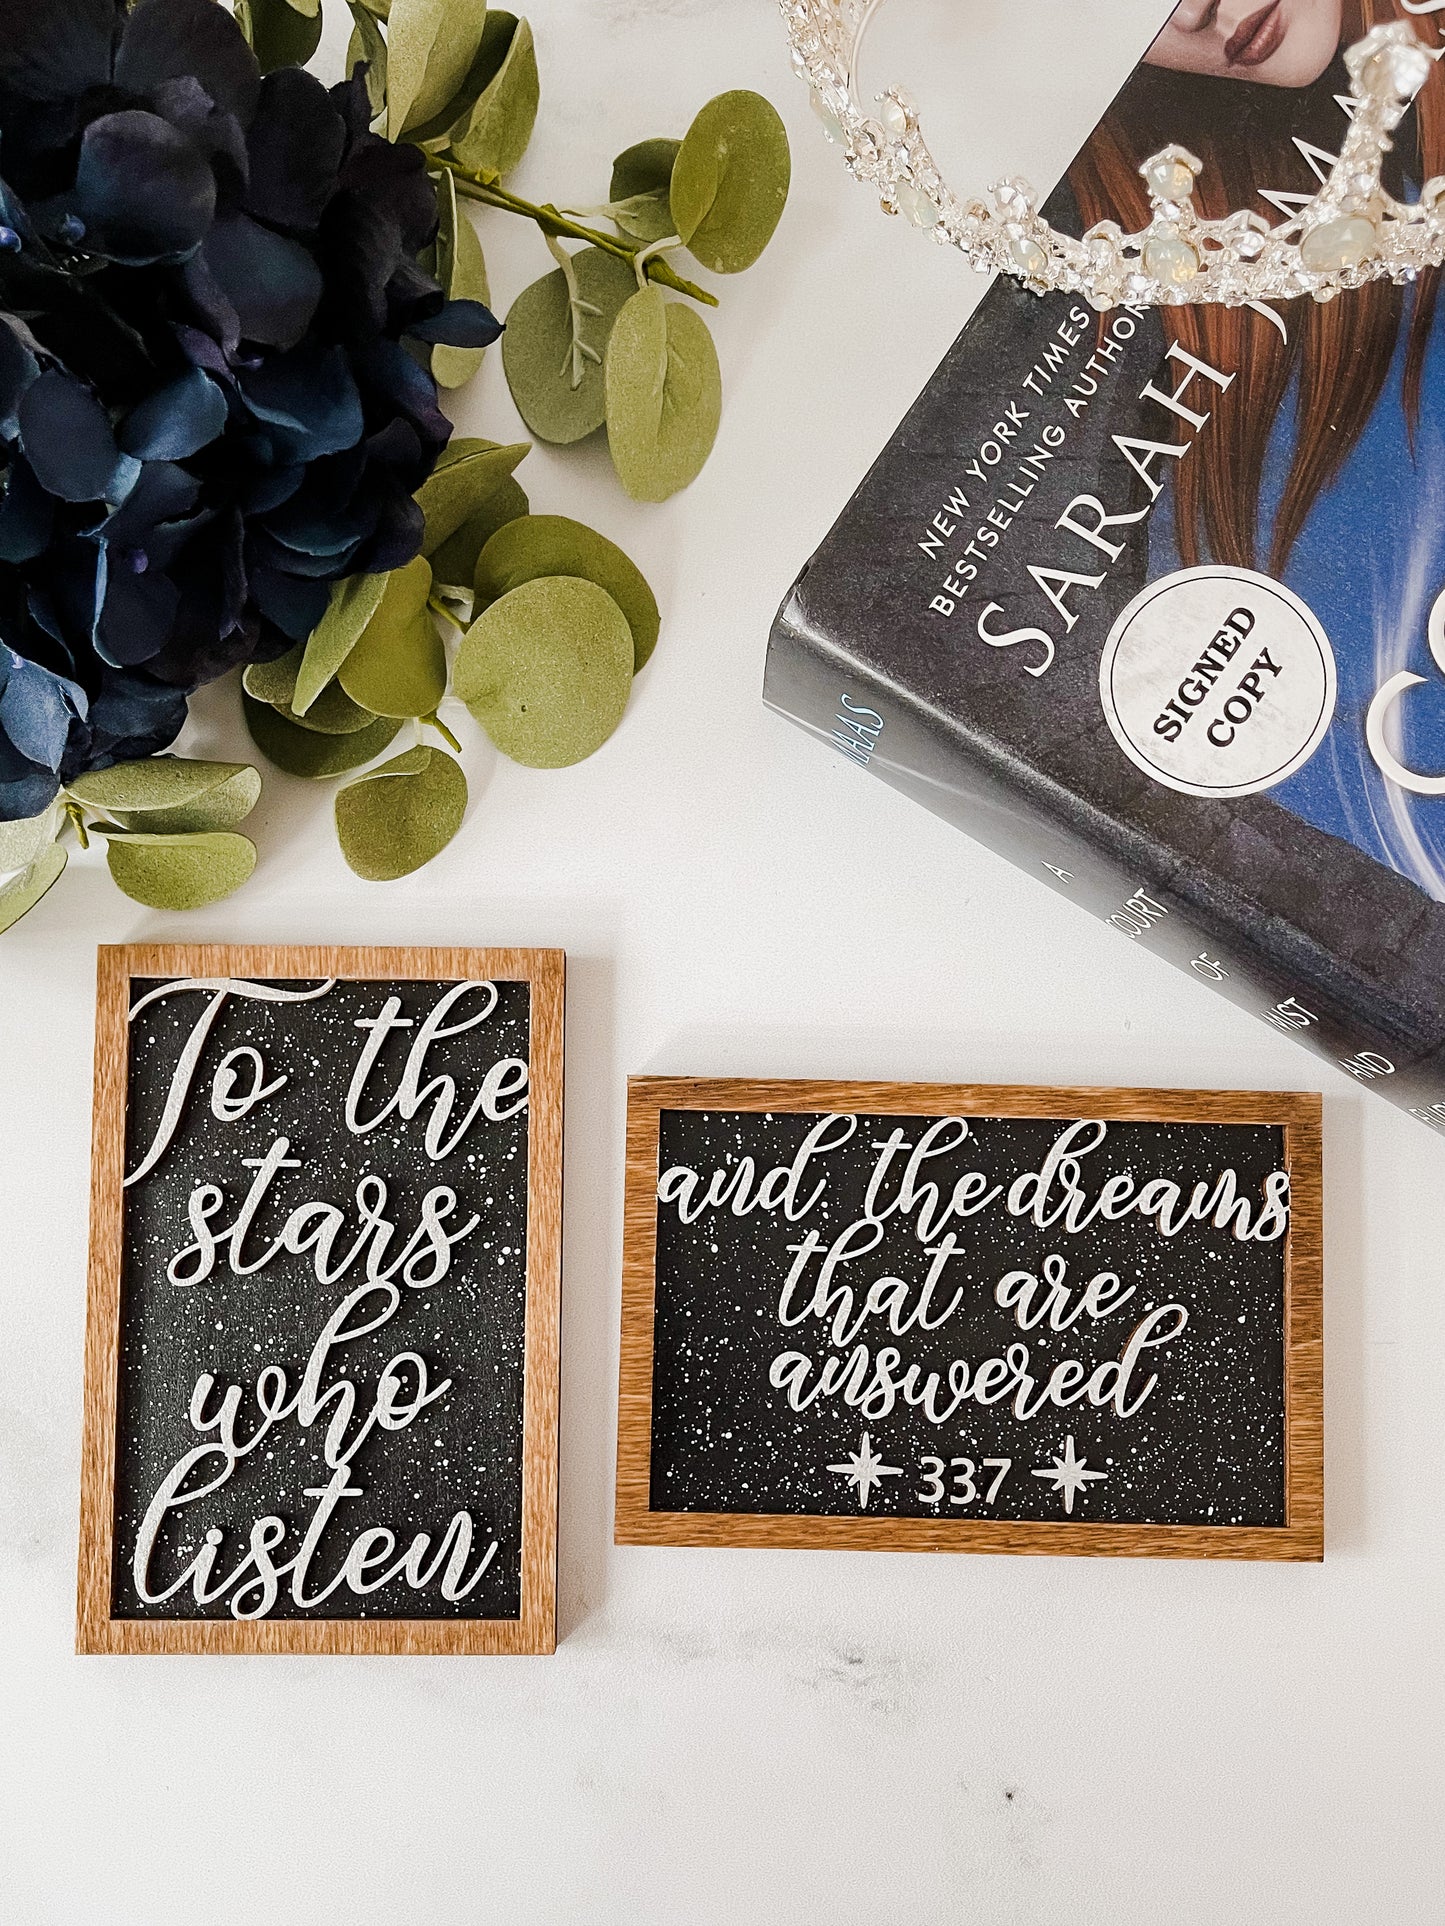 NEW YORK TIMES
BESTSELLING AUTHOR
SARAH J.
SIGNED
COPY
MAAS
A
COURT
OF
MIST
AND
To the
stars
who
listen
and the dreams
that are
answered
337